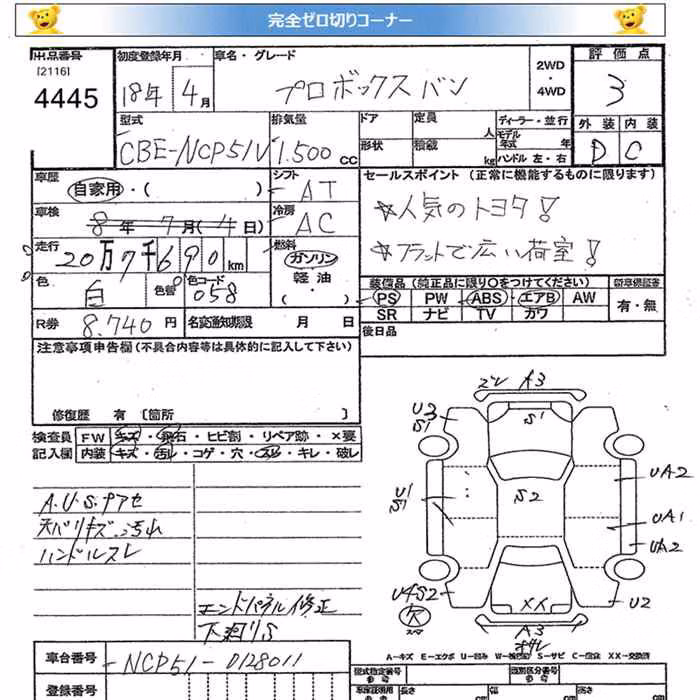 完全ゼロ切りコーナー
出品番号
[2116]
4445
初度登録年月
18年 4月
車名・グレード
プロボックスバン
2WD
・
4WD
評価点
3
型式
CBE-NCP51V
排気量
1.500 CC
ドア
定員
人
ディーラー・並行
モデル
年式 年
形状
積載
kg
ハンドル 左・右
外装 内装
D C
車歴
自家用・( )
シフト
AT
セールスポイント (正常に機能するものに限ります)
☆人気のトヨタ!
☆フラットで広い荷室!
車検
8年 7月(4日)
冷房
AC
走行
20万7千690km
燃料
ガソリン
軽油・
( )
色
白
色替
色コード
058
装備品 (純正品に限り〇をつけてください)
PS PW ABS エアB AW
SR ナビ TV カワ
新車保証書
有・無
R券 8.740 円
名変通知期限 月 日
後日品
注意事項申告欄 (不具合内容等は具体的に記入して下さい)
修復歴 有 [箇所 ]
検査員
記入欄
FW キズ・飛石・ヒビ割・リペア跡・×要
内装 キズ・汚レ・コゲ・穴・スレ・キレ・破レ
A.U.S.ナアセ
天バリキズ.汚れ
ハンドルスレ
エンドパネル修正
下廻りS
A3
U3
S1
S1
U1
S1
S2
UA2
UA1
UA2
U4S2
欠
XX
U2
A3
A-キズ E-エクボ U-凹み W-波 S-サビ C-腐食 XX-交換済
車台番号
NCP51-0128011
登録番号
型式指定番号
類別区分番号
長さ
幅
高さ